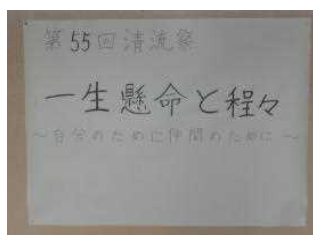 第55回清流祭
一生懸命と程々
～自分のために仲間のために～